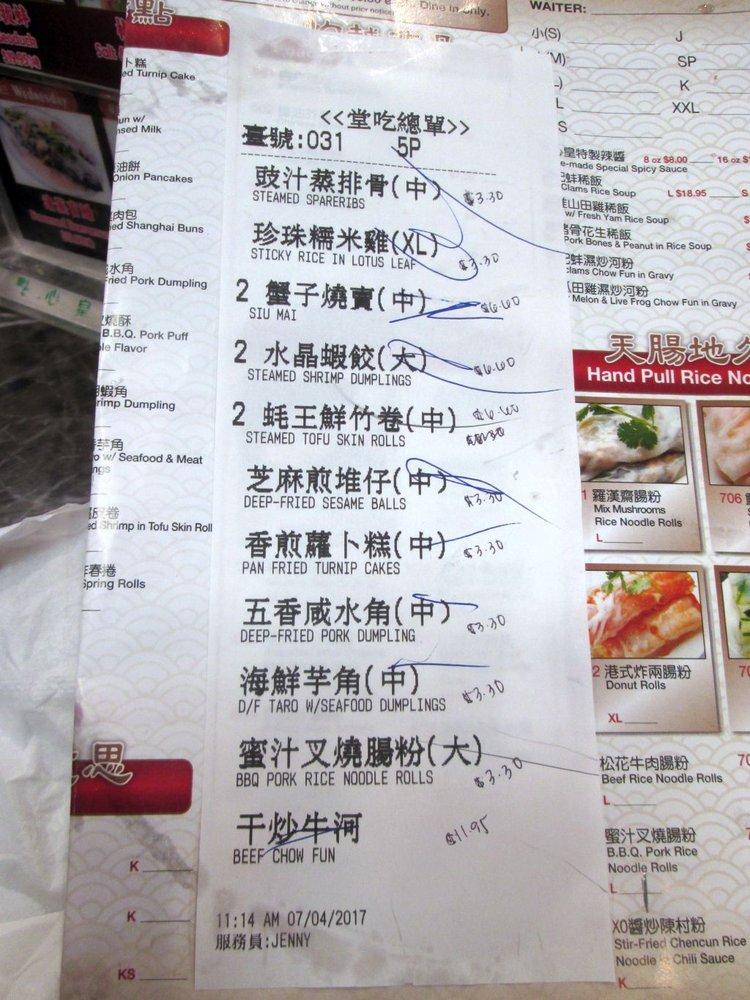 點
Dine In Only.
WAITER:
小(S)
J
SP
K
XL
XXL
卜糕
ed Turnip Cake
un w/
nsed Milk
油餅
Onion Pancakes
肉包
ed Shanghai Buns
水角
Fried Pork Dumpling
燒酥
B.B.Q. Pork Puff
le Flavor
蝦角
rimp Dumpling
芋角
w/ Seafood & Meat
ngs
皮卷
ed Shrimp in Tofu Skin Roll
春捲
Spring Rolls
思
K
K
KS
<<堂吃總單>>
臺號:031 5P
豉汁蒸排骨(中) $3.30
STEAMED SPARERIBS
珍珠糯米雞(XL) $3.30
STICKY RICE IN LOTUS LEAF
2 蟹子燒賣(中) $6.60
SIU MAI
2 水晶蝦餃(大) $6.60
STEAMED SHRIMP DUMPLINGS
2 蚝王鮮竹卷(中) $6.60
STEAMED TOFU SKIN ROLLS
芝麻煎堆仔(中) $3.30
DEEP-FRIED SESAME BALLS
香煎蘿卜糕(中) $3.30
PAN FRIED TURNIP CAKES
五香咸水角(中) $3.30
DEEP-FRIED PORK DUMPLING
海鮮芋角(中) $3.30
D/F TARO W/SEAFOOD DUMPLINGS
蜜汁叉燒腸粉(大) $3.30
BBQ PORK RICE NOODLE ROLLS
干炒牛河 $11.95
BEEF CHOW FUN
11:14 AM 07/04/2017
服務員:JENNY
皇特製辣醬 8 oz $8.00 16 oz
e-made Special Spicy Sauce
蚌稀飯
Clams Rice Soup L $18.95
山田雞稀飯
w/ Fresh Yam Rice Soup
骨花生稀飯
Pork Bones & Peanut in Rice Soup
蚌濕炒河粉
clams Chow Fun in Gravy
田雞濕炒河粉
Melon & Live Frog Chow Fun in Gravy
天腸地
Hand Pull Rice No
1 羅漢齋腸粉
Mix Mushrooms
Rice Noodle Rolls
L
706
2 港式炸兩腸粉
Donut Rolls
XL
松花牛肉腸粉
Beef Rice Noodle Rolls
L
蜜汁叉燒腸粉
B.B.Q. Pork Rice
Noodle Rolls
L
XO醬炒陳村粉
Stir-Fried Chencun Rice
Noodle Chili Sauce
K